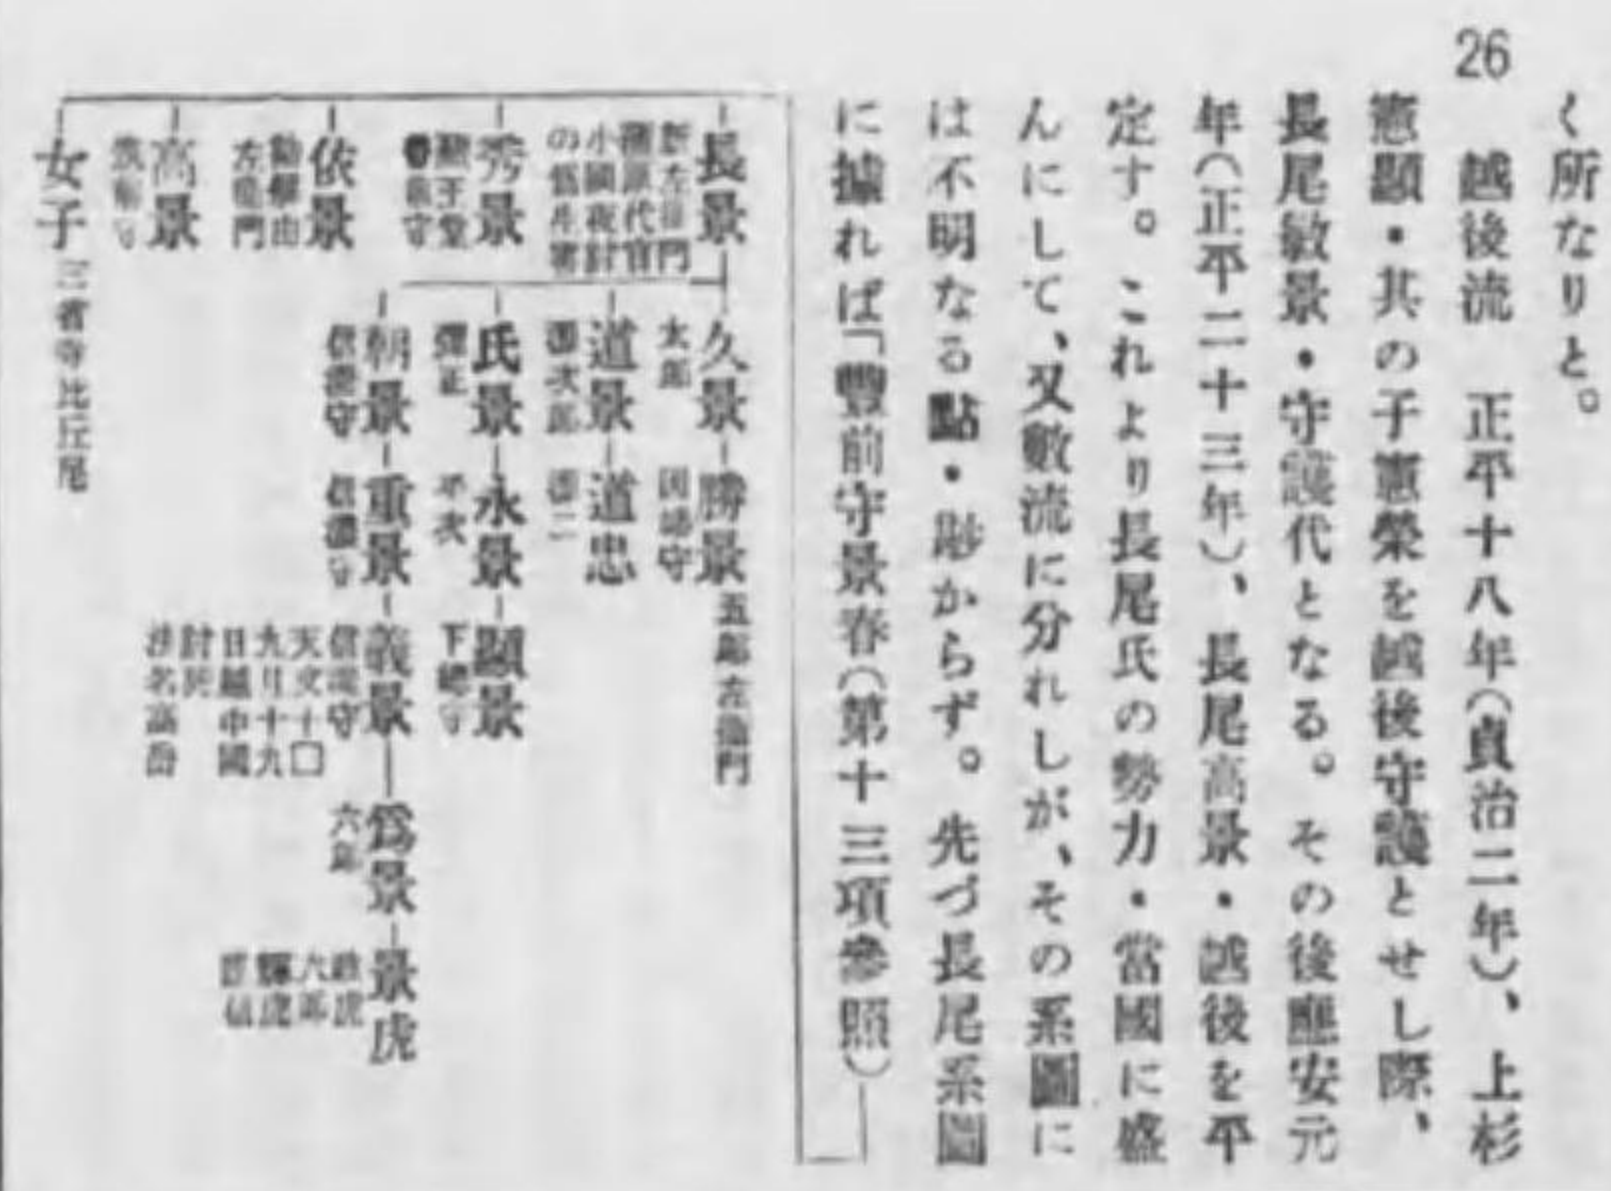 く所なりと。
26　越後流　正平十八年（貞治二年）、上杉
憲顯・其の子憲榮を越後守護とせし際、
長尾敏景・守護代となる。その後應安元
年（正平二十三年）、長尾高景・越後を平
定す。これより長尾氏の勢力・當國に盛
んにして、又數流に分れしが、その系圖に
は不明なる點・尠からず。先づ長尾系圖
に據れば「豐前守景春（第十三項參照）
長景
新左衞門
代官
小國夜討
の爲生害
久景
太郎
勝景
因幡守
五郎左衞門
道景
道忠
氏景
彈正
永景
平次
顯景
下總守
朝景
信濃守
重景
信濃守
義景
信濃守
天文十□
九月十九
日越中國
討死
法名高岳
爲景
六郎
景虎
政虎
六郎
輝虎
謙信
秀景
依景
勘解由
左衞門
高景
筑前守
女子
比丘尼